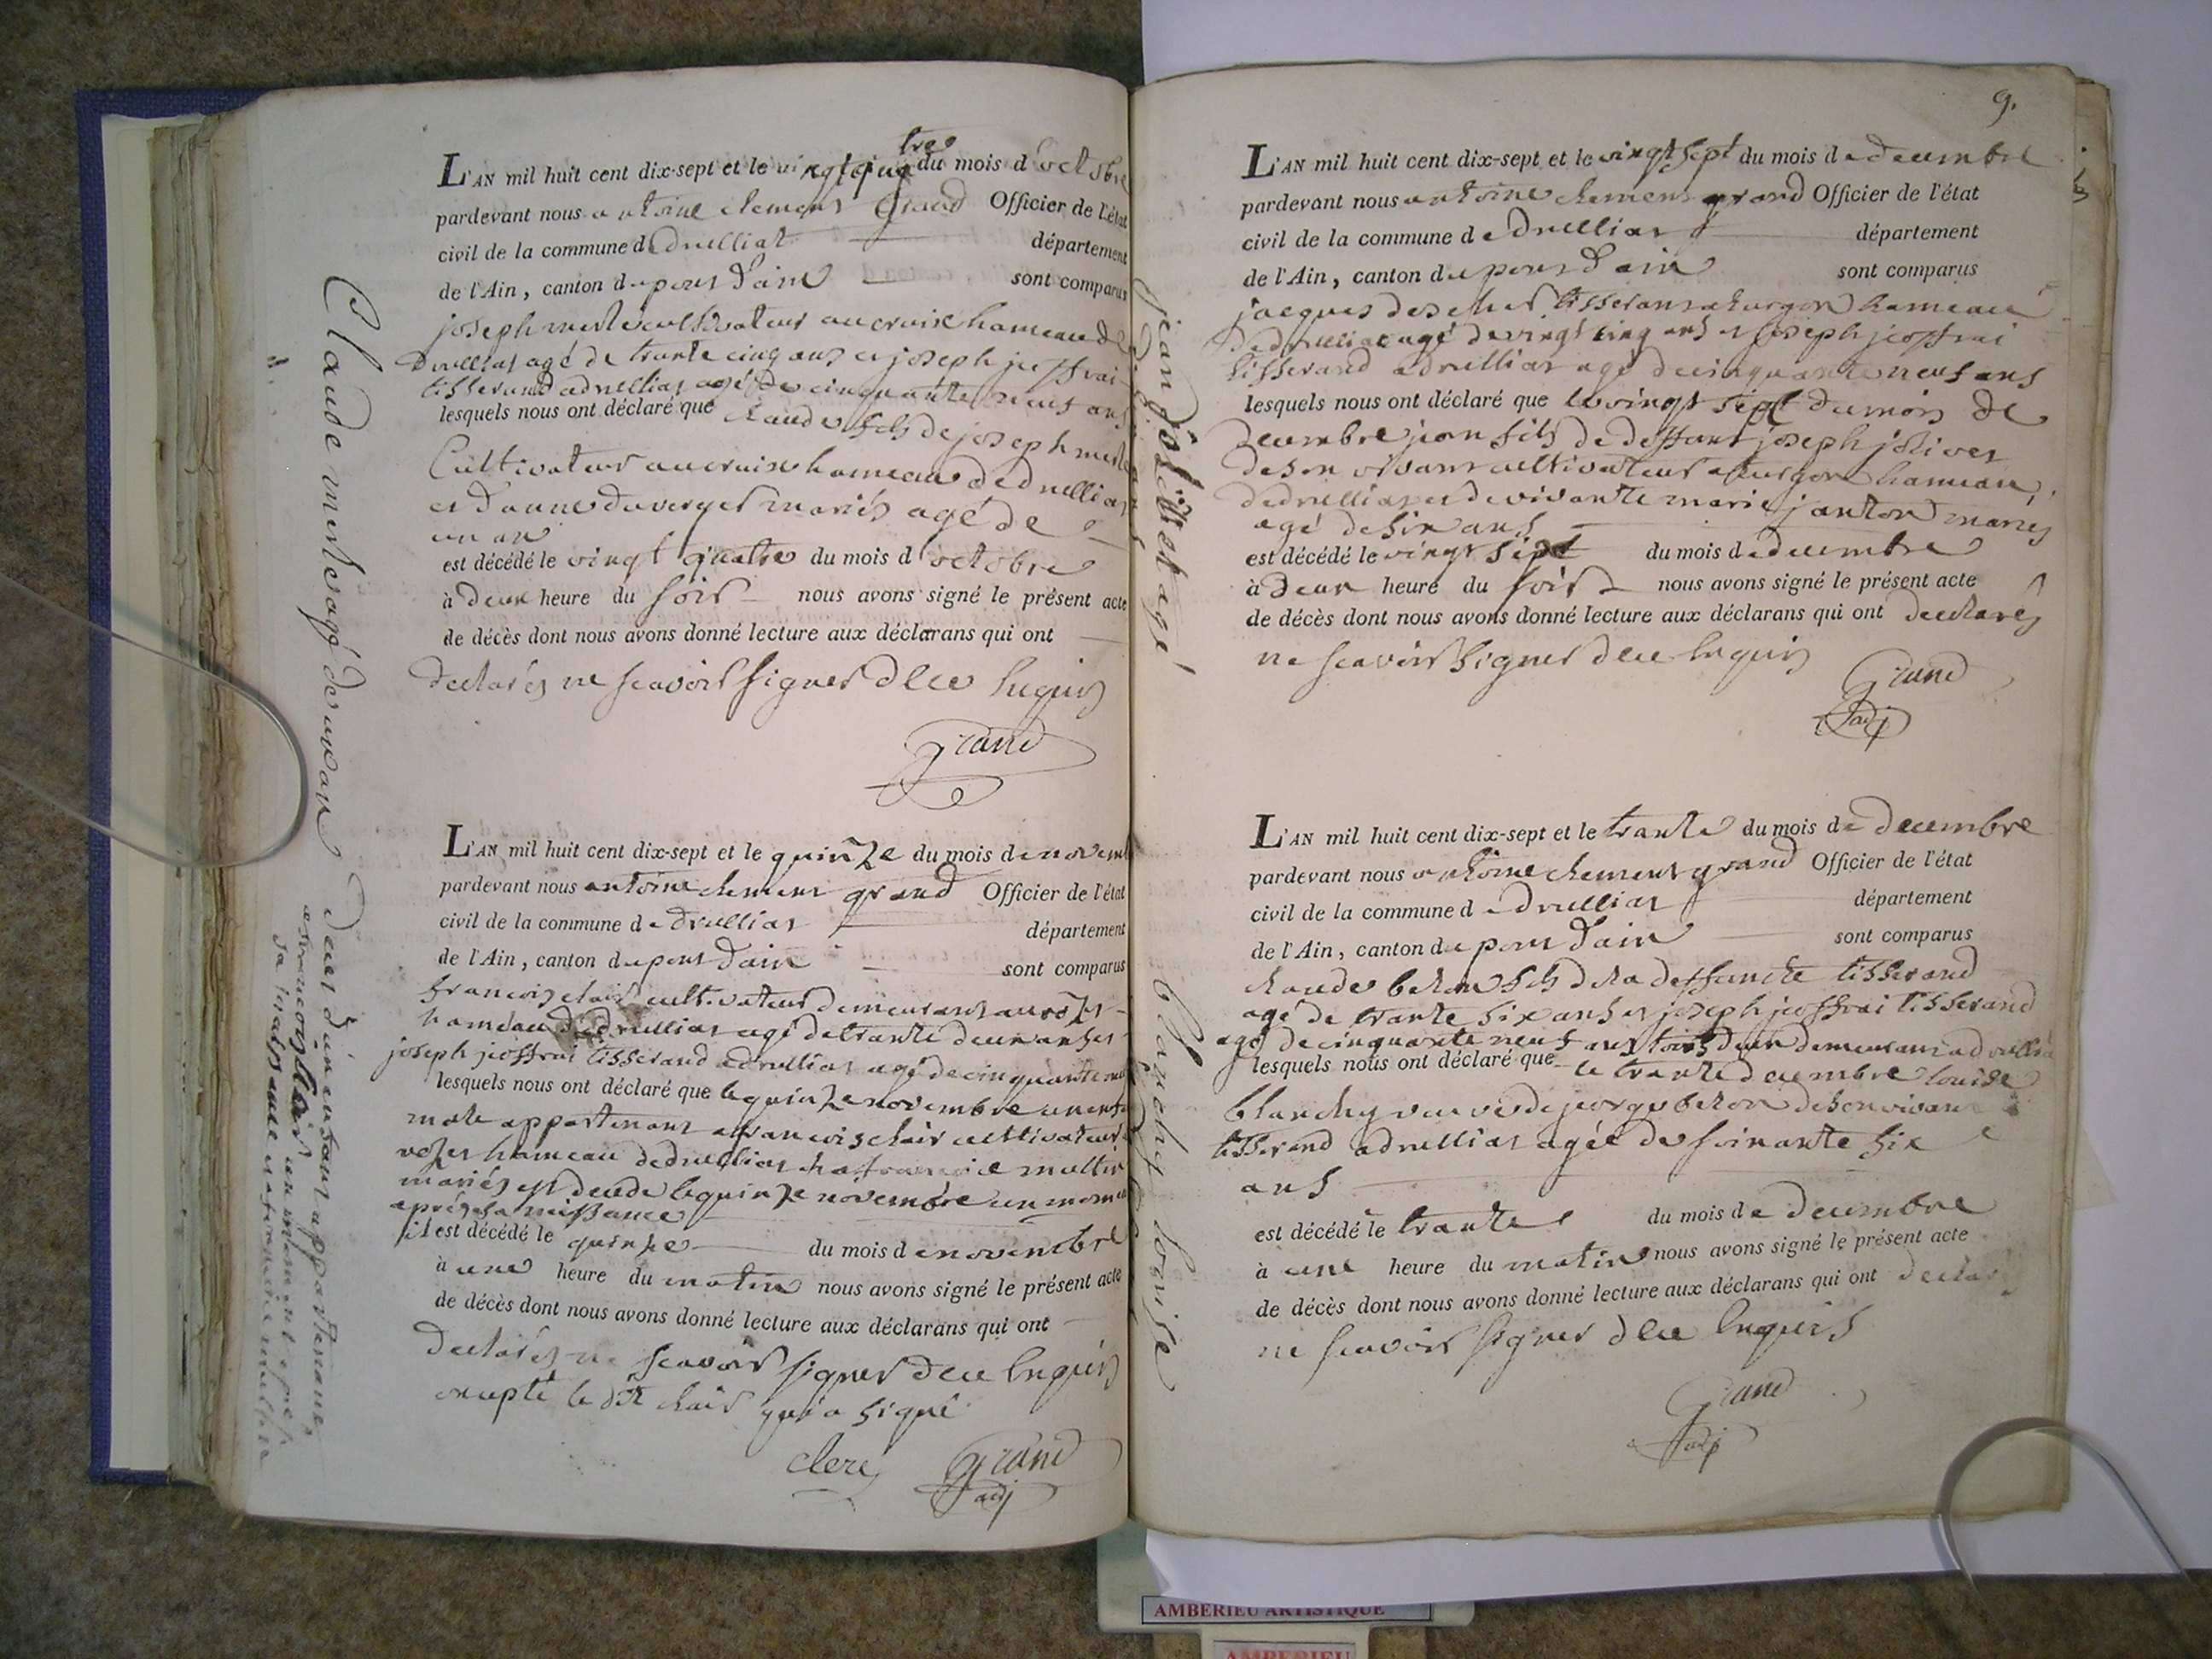 L'AN mil huit cent dix-sept et le vingt quatre du mois d octobre
pardevant nous antoine clement Grand Officier de l'état
civil de la commune de druilliat département
de l'Ain, canton du pont d'ain sont comparus
joseph merle cultivateur au croix hameau de
druilliat agé de trante cinq ans et joseph jeoffrai
tisserand a druilliat agé de cinquante neuf ans
lesquels nous ont déclaré que claude fils de joseph merle
Cultivateur au croix hameau de druilliat
et d'anne duverger mariés agé de
un an
est décédé le vingt quatre du mois d octobre
à deux heure du soir nous avons signé le présent acte
de décès dont nous avons donné lecture aux déclarans qui ont
declarés ne scavoir signer de ce enquis
Grand
Claude merle agé de un an
L'AN mil huit cent dix-sept et le quinze du mois de novemb
pardevant nous antoine clement grand Officier de l'état
civil de la commune de druilliat département
de l'Ain, canton du pont d'ain sont comparus
francois clair cultivateur demeurant au
hameau de druilliat agé de trante deux ans et
joseph jeoffrai tisserand a druilliat agé de cinquante neuf
lesquels nous ont déclaré que le quinze novembre un enfant
male appartenant a francois clair cultivateur
hameau de druilliat
mariés est decede le quinze novembre un moment
après sa naissance
il est décédé le quinze du mois de novembre
à une heure du matin nous avons signé le présent acte
de décès dont nous avons donné lecture aux déclarans qui ont
declarés ne scavoir signer de ce enquis
excepté le dit clair qui a signé
clerc Grand
adj
deces d'un enfant appartenant
a francois clair un moment après
sa naissance
9.
L'AN mil huit cent dix-sept et le vingt sept du mois de decembre
pardevant nous antoine clement grand Officier de l'état
civil de la commune de druilliat département
de l'Ain, canton du pont d'ain sont comparus
jacques tisserant a turgon hameau
de druilliat agé de vingt cinq ans et joseph jeoffrai
tisserand a druilliat agé de cinquante neuf ans
lesquels nous ont déclaré que le vingt sept du mois de
decembre jean fils de deffunt joseph jolivet
de son vivant cultivateur a turgon hameau
de druilliat et de vivante marie janton mariés
agé de six ans
est décédé le vingt sept du mois de decembre
à deux heure du soir nous avons signé le présent acte
de décès dont nous avons donné lecture aux déclarans qui ont declarés
ne scavoir signer de ce enquis
Grand
adj
jean jolivet agé
L'AN mil huit cent dix-sept et le trante du mois de decembre
pardevant nous antoine clement grand Officier de l'état
civil de la commune de druilliat département
de l'Ain, canton du pont d'ain sont comparus
claude belon fils de la deffuncte tisserand
agé de trante six ans et joseph jeoffrai tisserand
agé de cinquante neuf ans tous deux demeurans a druillia
lesquels nous ont déclaré que le trante decembre louise
blanchy veuve de jeorge belon de son vivant
tisserand a druilliat agée de soixante six
ans
est décédé le trante du mois de decembre
à une heure du matin nous avons signé le présent acte
de décès dont nous avons donné lecture aux déclarans qui ont declar
ne scavoir signer de ce enquis
Grand
adj
blanchy louise
AMBERIEU ARTISTIQUE
AMBERIEU